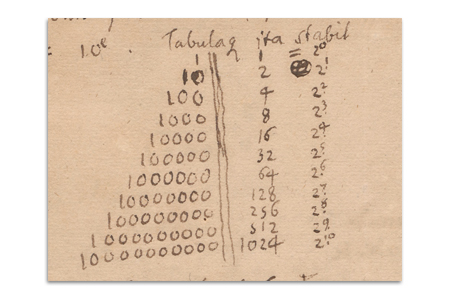 = 10e. Tabula ita stabit
1 1 = 2^0
10 2 2^1
100 4 2^2
1000 8 2^3
10000 16 2^4
100000 32 2^5
1000000 64 2^6
10000000 128 2^7
100000000 256 2^8
1000000000 512 2^9
10000000000 1024 2^10